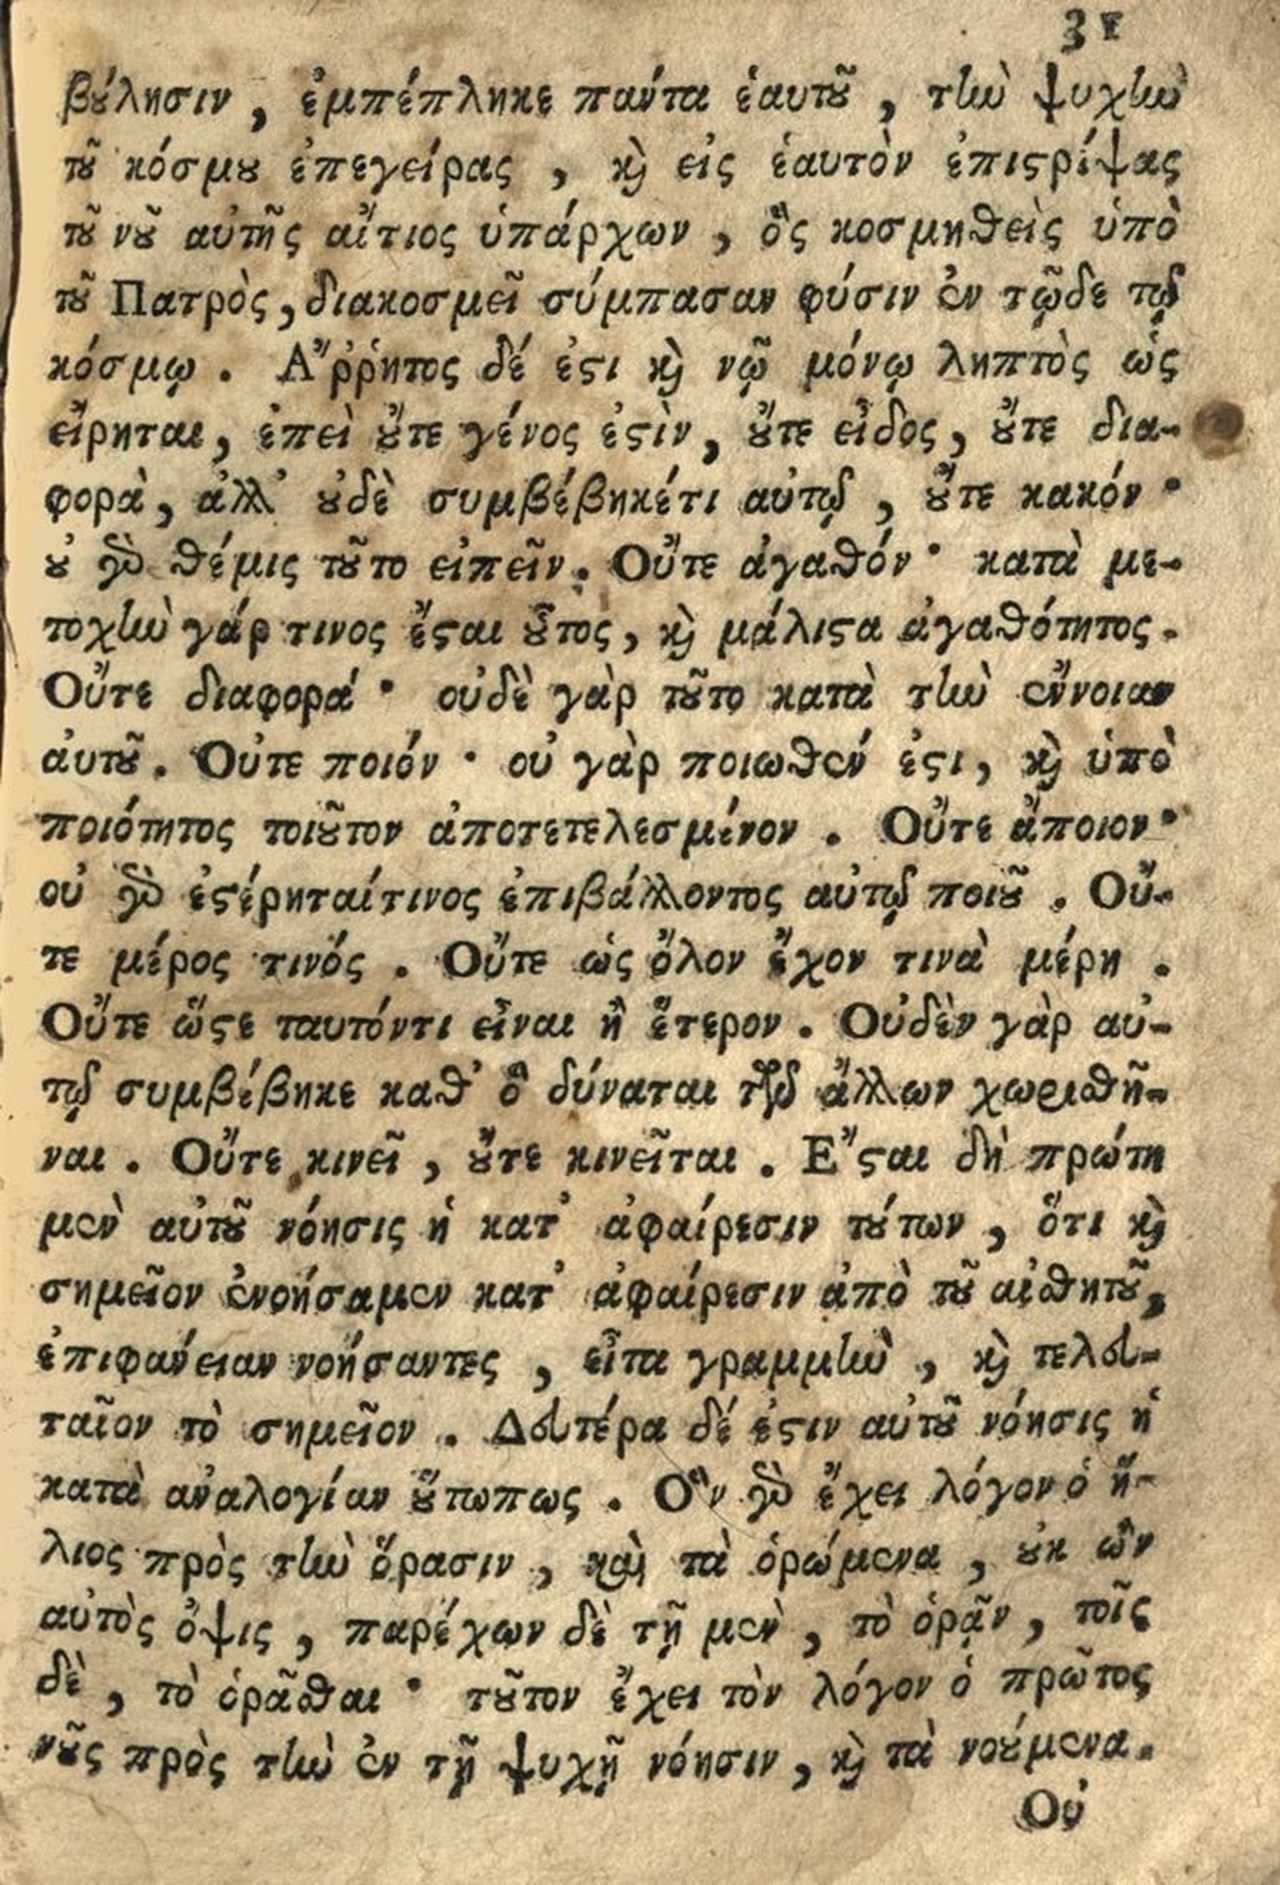 31
βȣ́λησιν, ἐμπέπληκε παντα ἑαυτȣ͂, τὴν ψυχὴν
τȣ͂ κόσμȣ ἐπεγείρας, ϗ̀ εἰς ἑαυτὸν ἐπιϛρέψας
τȣ͂ νȣ͂ αὐτῆς αἴτιος ὑπάρχων, ὃς κοσμηθεὶς ὑπὸ
τȣ͂ Πατρὸς, διακοσμεῖ σύμπασαν φύσιν ἐν τῷδε τῷ
κόσμῳ. Ἄῤῥητος δέ ἐϛι ϗ̀ νῷ μόνῳ ληπτὸς ὡς
εἴρηται, ἐπεὶ ȣ̓́τε γένος ἐϛὶν, ȣ̓́τε εἶδος, ȣ̓́τε δια-
φορὰ, ἀλλ' ȣ̓δὲ συμβέβηκέτι αὐτῷ, ȣ̓́τε κακόν·
ȣ̓ γὸ θέμις τȣ͂το εἰπεῖν. Οὔτε ἀγαθόν· κατὰ με-
τοχὴν γάρ τινος ἔϛαι ȣ̔͂τος, ϗ̀ μάλιϛα ἀγαθότητος.
Οὔτε διαφορά· οὐδὲ γὰρ τȣ͂το κατὰ τὴν ἔννοιαν
ἀυτȣ͂. Οὐτε ποιόν· οὐ γὰρ ποιωθέν ἐϛι, ϗ̀ ὑπὸ
ποιότητος τοιȣ͂τον ἀποτετελεσμένον. Οὔτε ἄποιον·
οὐ γὸ ἐϛέρηταίτινος ἐπιβάλλοντος αὐτῷ ποιȣ͂. Οὔ-
τε μέρος τινός. Οὔτε ὡς ὅλον ἔχον τινὰ μέρη.
Οὔτε ὥϛε ταυτόντι εἶναι ἢ ἕτερον. Οὐδὲν γὰρ αὐ-
τῷ συμβέβηκε καθ' ὃ δύναται τῶν ἄλλων χωρισθῆ-
ναι. Οὔτε κινεῖ, ȣ̓́τε κινεῖται. Ἔϛαι δὴ πρώτη
μὲν αὐτȣ͂ νόησις ἡ κατ' ἀφαίρεσιν τȣ́των, ὅτι ϗ̀
σημεῖον ἐνοήσαμεν κατ' ἀφαίρεσιν ἀπὸ τȣ͂ αἰσθητȣ͂,
ἐπιφάνειαν νοήσαντες, εἶτα γραμμὴν, ϗ̀ τελευ-
ταῖον τὸ σημεῖον. Δευτέρα δέ ἐϛιν αὐτȣ͂ νόησις ἡ
κατὰ ἀναλογίαν ȣ̔́τωπως. Ὃν γὸ ἔχει λόγον ὁ ἥ-
λιος πρὸς τὴν ὅρασιν, καὶ τὰ ὁρώμενα, ȣ̓κ ὢν
αὐτὸς ὄψις, παρέχων δὲ τῇ μὲν, τὸ ὁρᾷν, τοῖς
δὲ, τὸ ὁρᾶσθαι· τȣ͂τον ἔχει τὸν λόγον ὁ πρῶτος
νȣ͂ς πρὸς τὴν ἐν τῇ ψυχῇ νόησιν, ϗ̀ τὰ νούμενα.
Οὐ